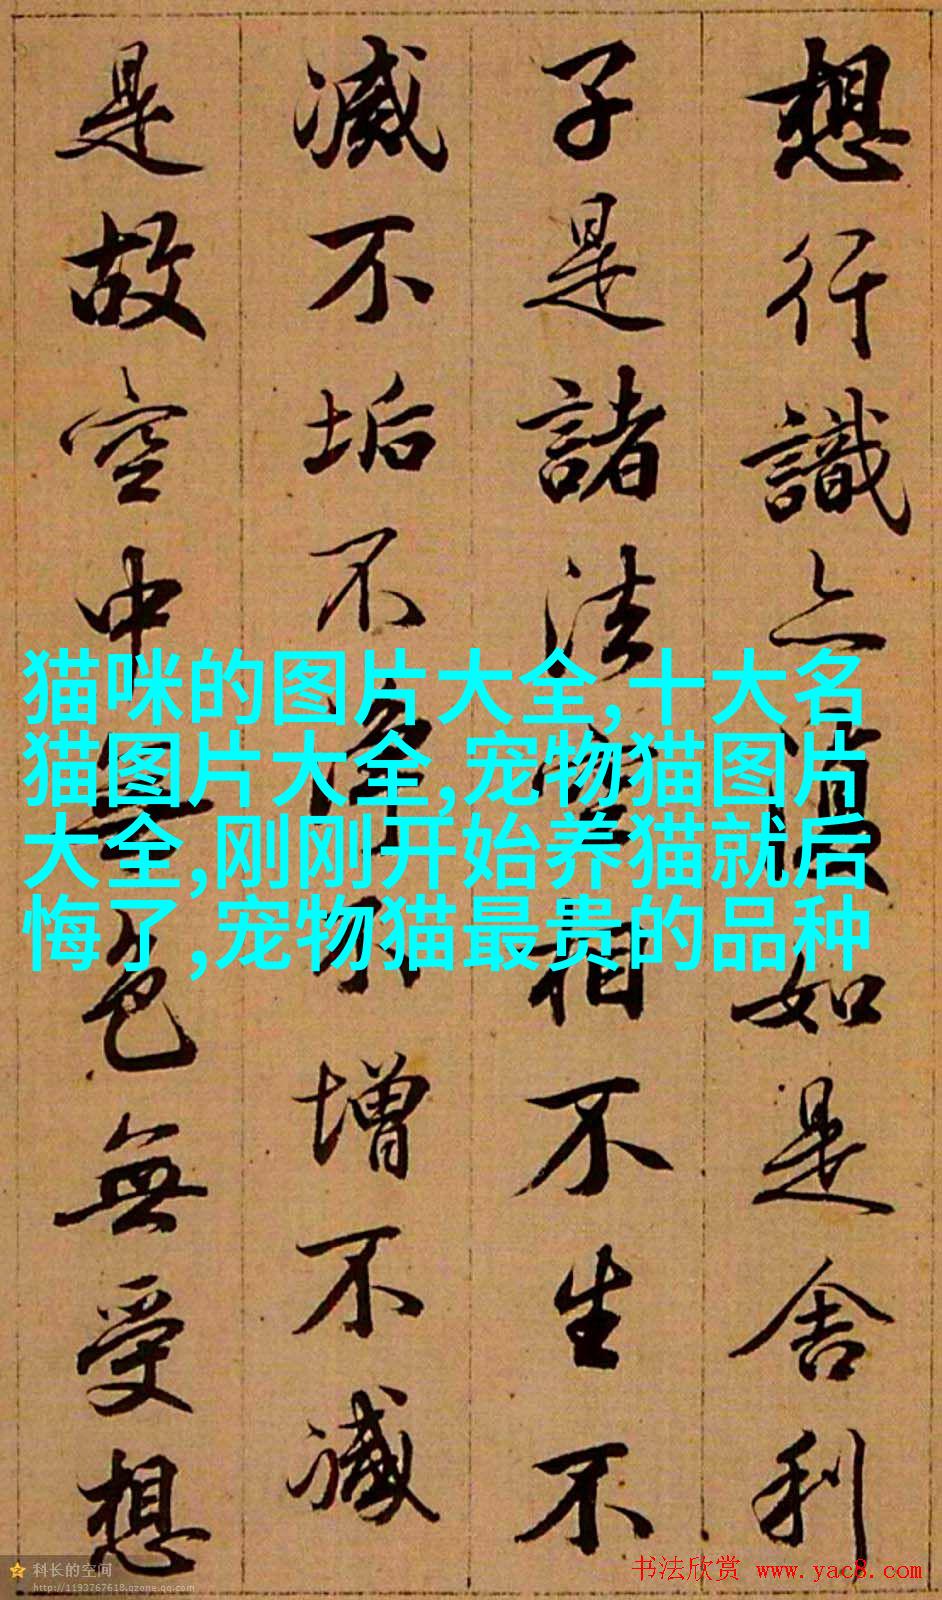 想行識亦復如是舍利
子是諸法空相不生不
滅不垢不淨不增不減
是故空中無色無受想
猫咪的图片大全,十大名
猫图片大全,宠物猫图片
大全,刚刚开始养猫就后
悔了,宠物猫最贵的品种
科长的空间
http://1193767618.qzone.qq.com
书法欣赏 www.yac8.com